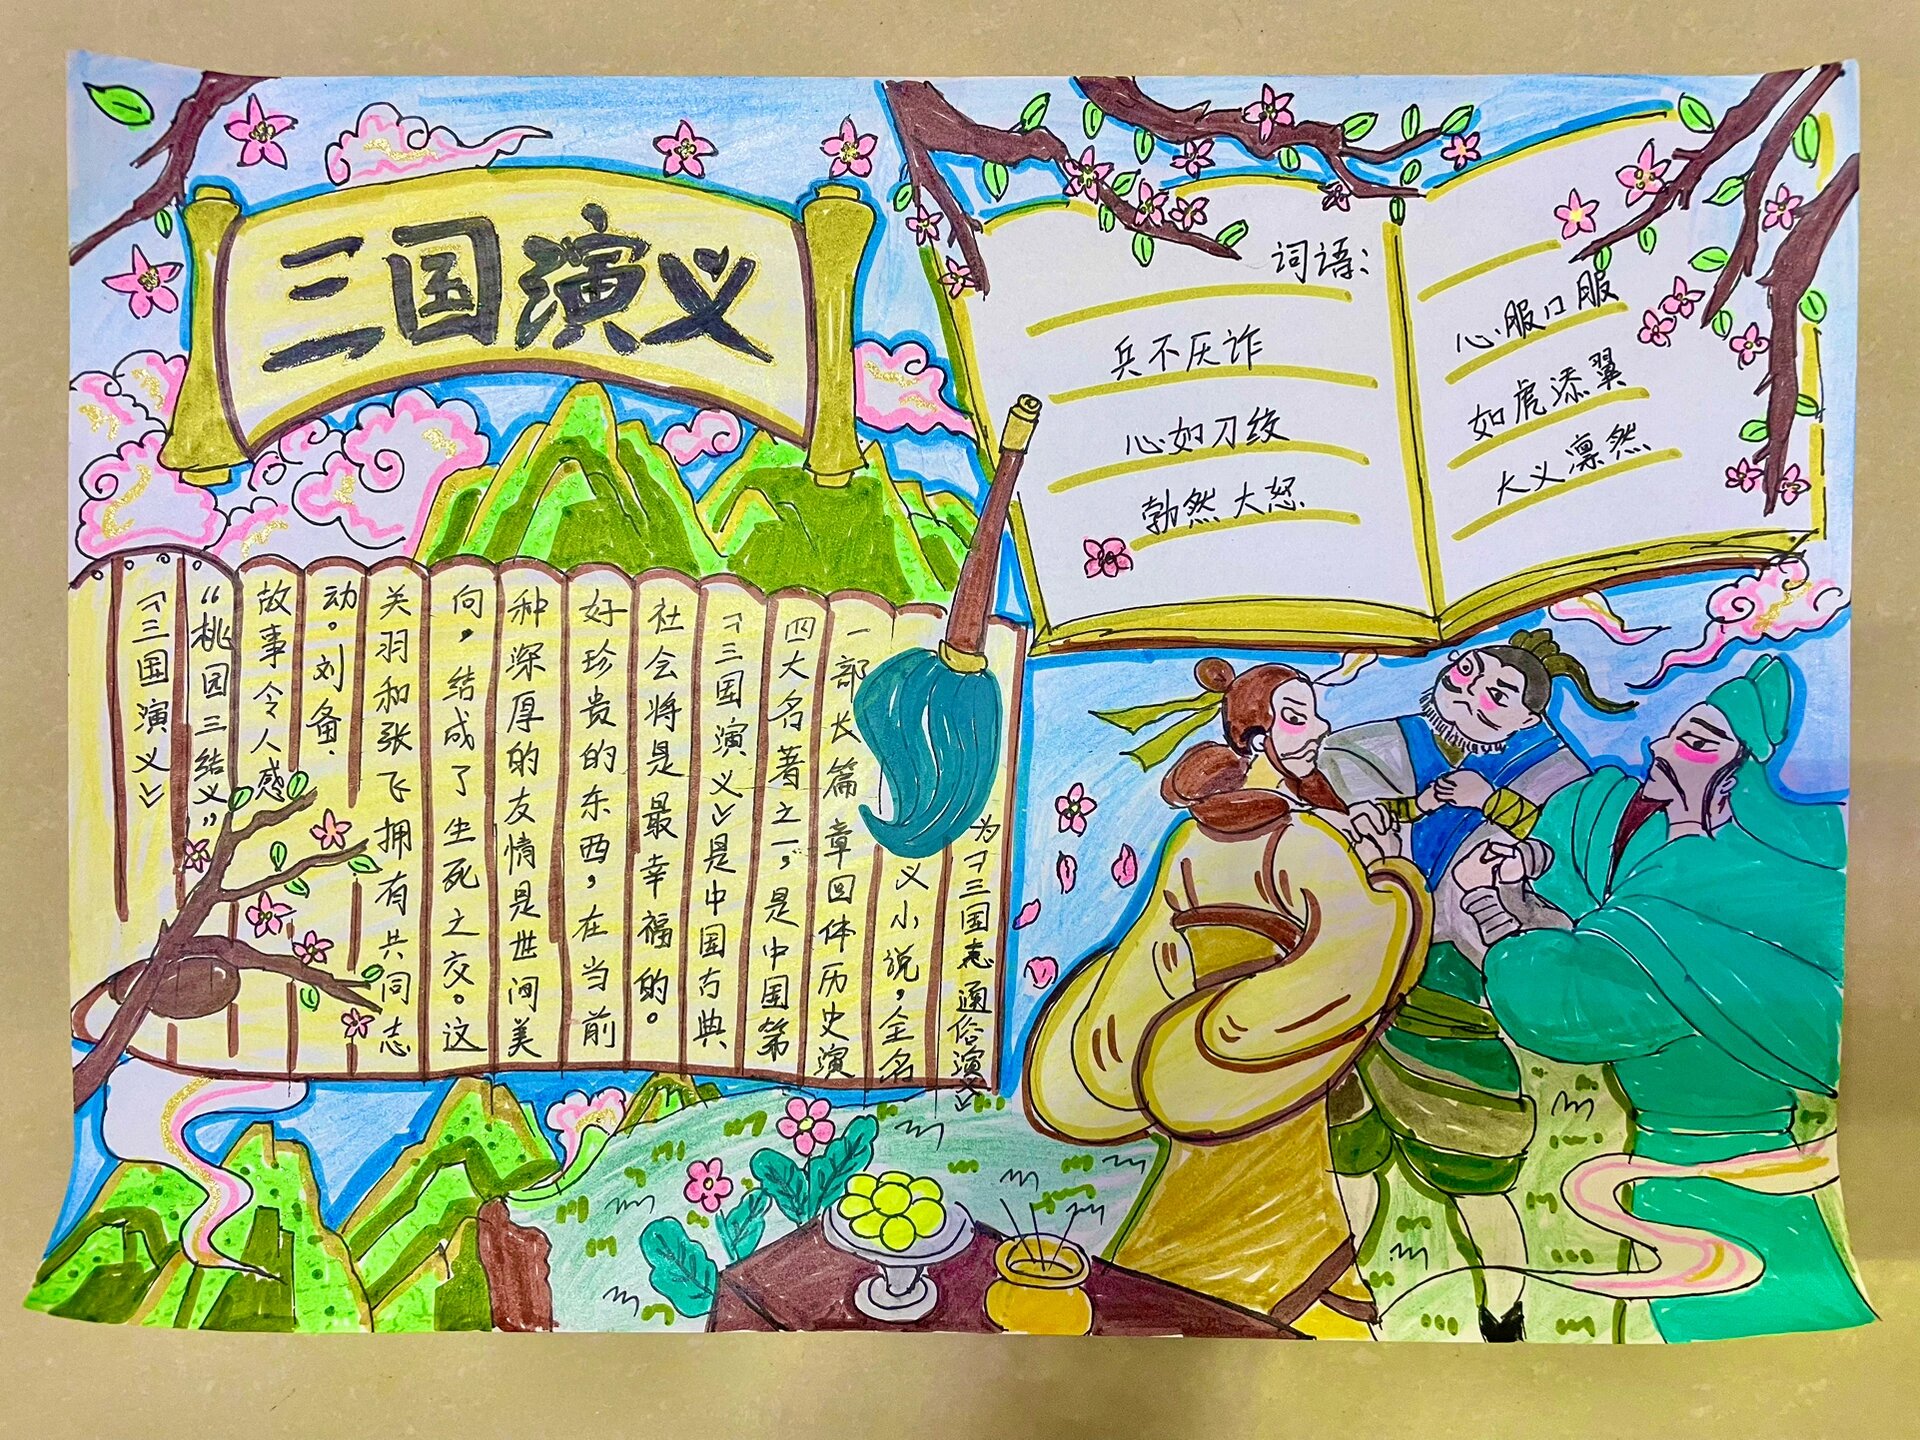 三国演义
《三国演义》
“桃园三结义”
故事令人感
动。刘备、
关羽和张飞拥有共同志
向，结成了生死之交。这
种深厚的友情是世间美
好珍贵的东西，在当前
社会将是最幸福的。
《三国演义》是中国古典
四大名著之一，是中国第
一部长篇章回体历史演
义小说，全名
为《三国志通俗演义》
词语：
兵不厌诈
心如刀绞
勃然大怒
心服口服
如虎添翼
大义凛然